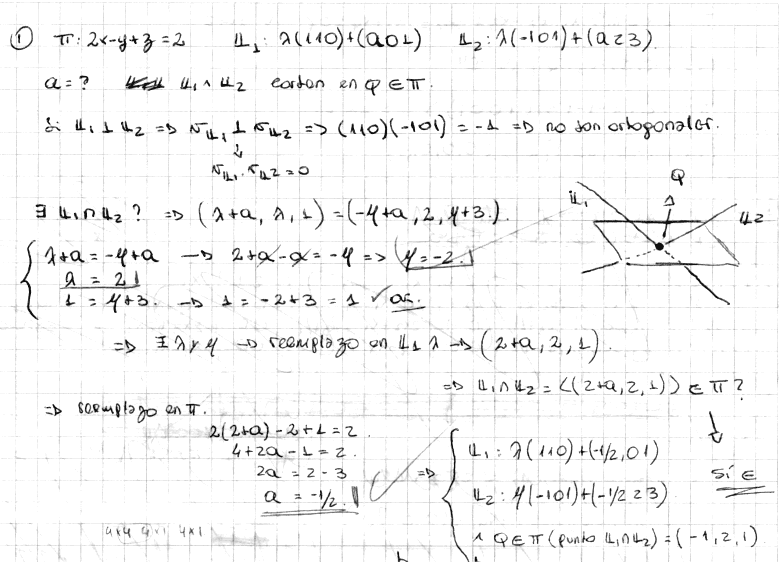 ① π: 2x-y+z=2 𝕃₁: λ(110)+(a01) 𝕃₂: λ(-101)+(a23)
a=? 𝕃₁∩𝕃₂ cortan en Q∈π.
Si 𝕃₁⊥𝕃₂ => v𝕃₁ ⊥ v𝕃₂ => (110)(-101) = -1 => no son ortogonales.
↓
v𝕃₁.v𝕃₂=0
∃ 𝕃₁∩𝕃₂? => (λ+a, λ, 1)=(-y+a, 2, y+3).
λ+a = -y+a → 2+a-a = -y => y=-2.
λ = 2
1 = y+3. → 1 = -2+3 = 1 ✓ ok.
Q
𝕃₁
𝕃₂
=> ∃ λ y y → reemplazo en 𝕃₁ λ → (2+a, 2, 1).
=> 𝕃₁∩𝕃₂ = <(2+a, 2, 1)> ∈ π?
↓
sí ∈
=> reemplazo en π.
2(2+a)-2+1=2.
4+2a-1=2.
2a = 2-3
a = -1/2. ✓
=> 𝕃₁: λ(110)+(-1/2,01)
𝕃₂: y(-101)+(-1/2 23)
1 Q∈π (punto 𝕃₁∩𝕃₂) = (-1,2,1)
4x4 4x1 4x1